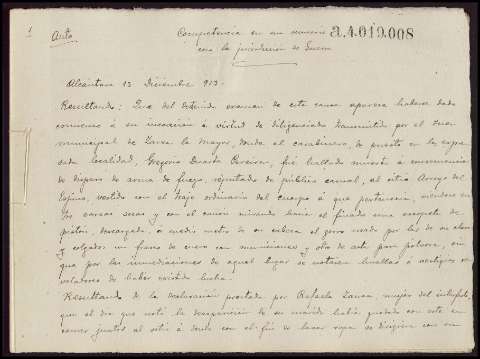 1
Auto
Competencia en un sumario
con la jurisdicción de Guerra
a.4.019.008
Alcántara 13 Diciembre 913.
Resultando: Que del detenido examen de esta causa aparece haberse dado
comienzo á su incoación á virtud de diligencias transmitidas por el Juez
municipal de Zarza la Mayor, donde al carabinero, de puesto en la expre
sada localidad, Gregorio Duarte Pereira, fué hallado muerto á consecuencia
de disparo de arma de fuego, reputado de pública casual, al sitio Arroyo del
vestido con el traje ordinario del cuerpo á que pertenecía,
y con el cañon mirando hacia el finado una escopeta de
piston, descargada, á medio metro de su cabeza el gorro
y colgados un frasco de cuero con municiones y otro de asta para polvora, sin
que por las inmediaciones de aquel lugar se notaran huellas ó vestigios re
veladores de haber existido lucha.
Resultando de la declaración prestada por Rafaela mujer del interfecto,
que el dia que notó la desaparición de su marido habia quedado con este en
juntos al sitio á donde con el fin de lavar ropa se dirigiera con un